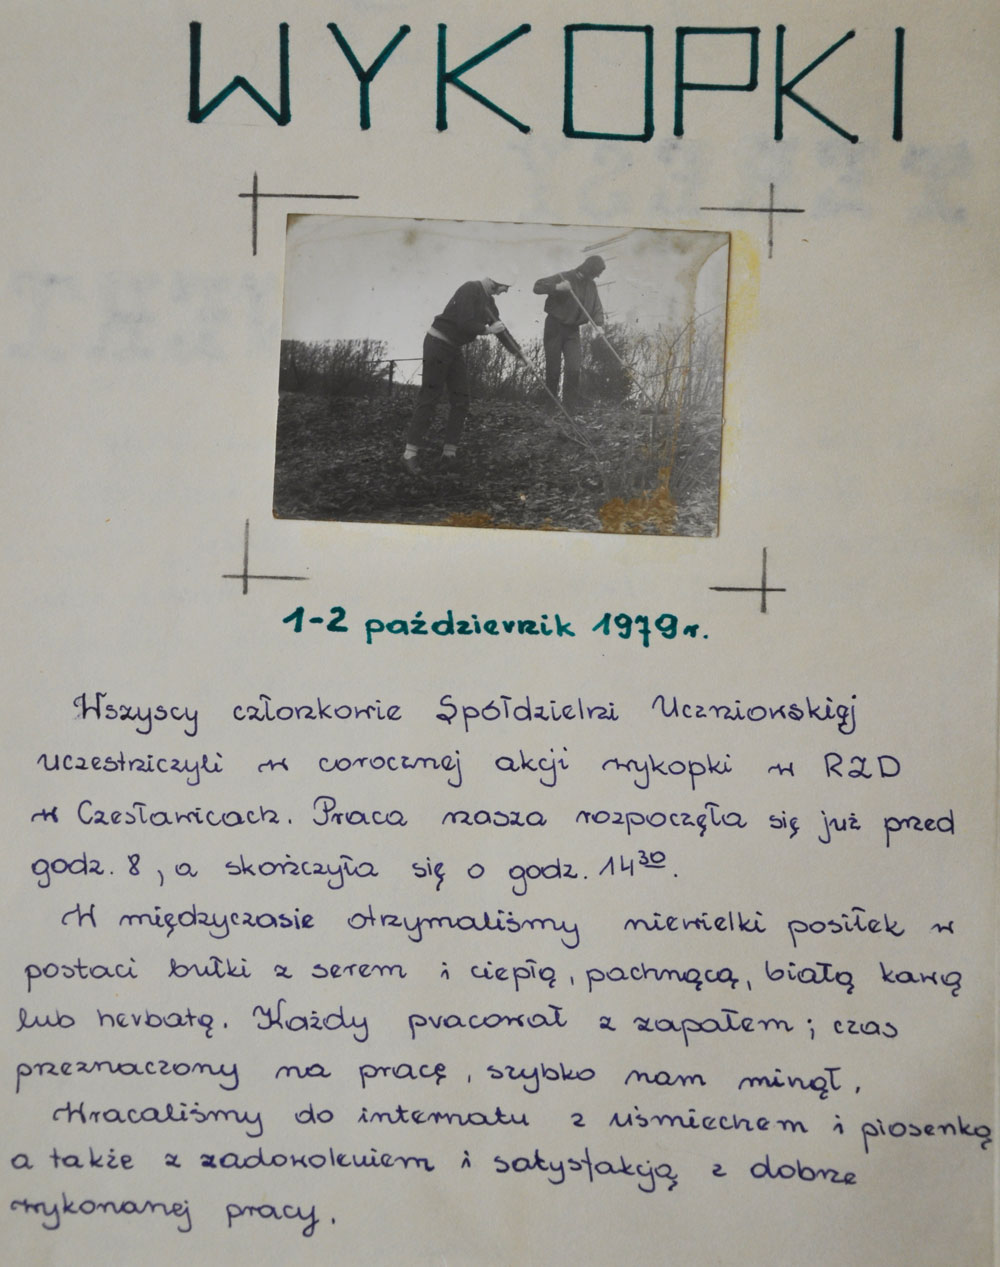 WYKOPKI
1-2 październik 1979 r.
Wszyscy członkowie Spółdzielni Uczniowskiej
uczestniczyli w corocznej akcji wykopki w RZD
w Czesławicach. Praca nasza rozpoczęła się już przed
godz. 8, a skończyła się o godz. 14 30.
W międzyczasie otrzymaliśmy niewielki posiłek w
postaci bułki z serem i ciepłą, pachnącą, białą kawą
lub herbatą. Każdy pracował z zapałem; czas
przeznaczony na pracę, szybko nam minął.
Wracaliśmy do internatu z uśmiechem i piosenką
a także z zadowoleniem i satysfakcją z dobrze
wykonanej pracy.